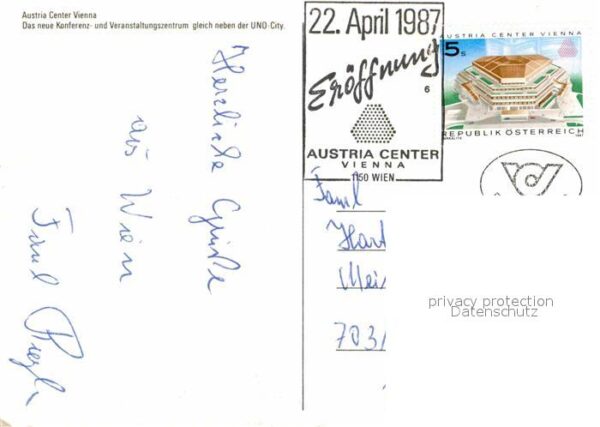 Austria Center Vienna
Das neue Konferenz- und Veranstaltungszentrum gleich neben der UNO-City.
Herzliche Grüße
aus Wien
Faml
22. April 1987
Eröffnung
6
AUSTRIA CENTER
VIENNA
1150 WIEN
AUSTRIA CENTER VIENNA
5s
REPUBLIK ÖSTERREICH
1987
Faml
Hart
Mei
703
privacy protection
Datenschutz